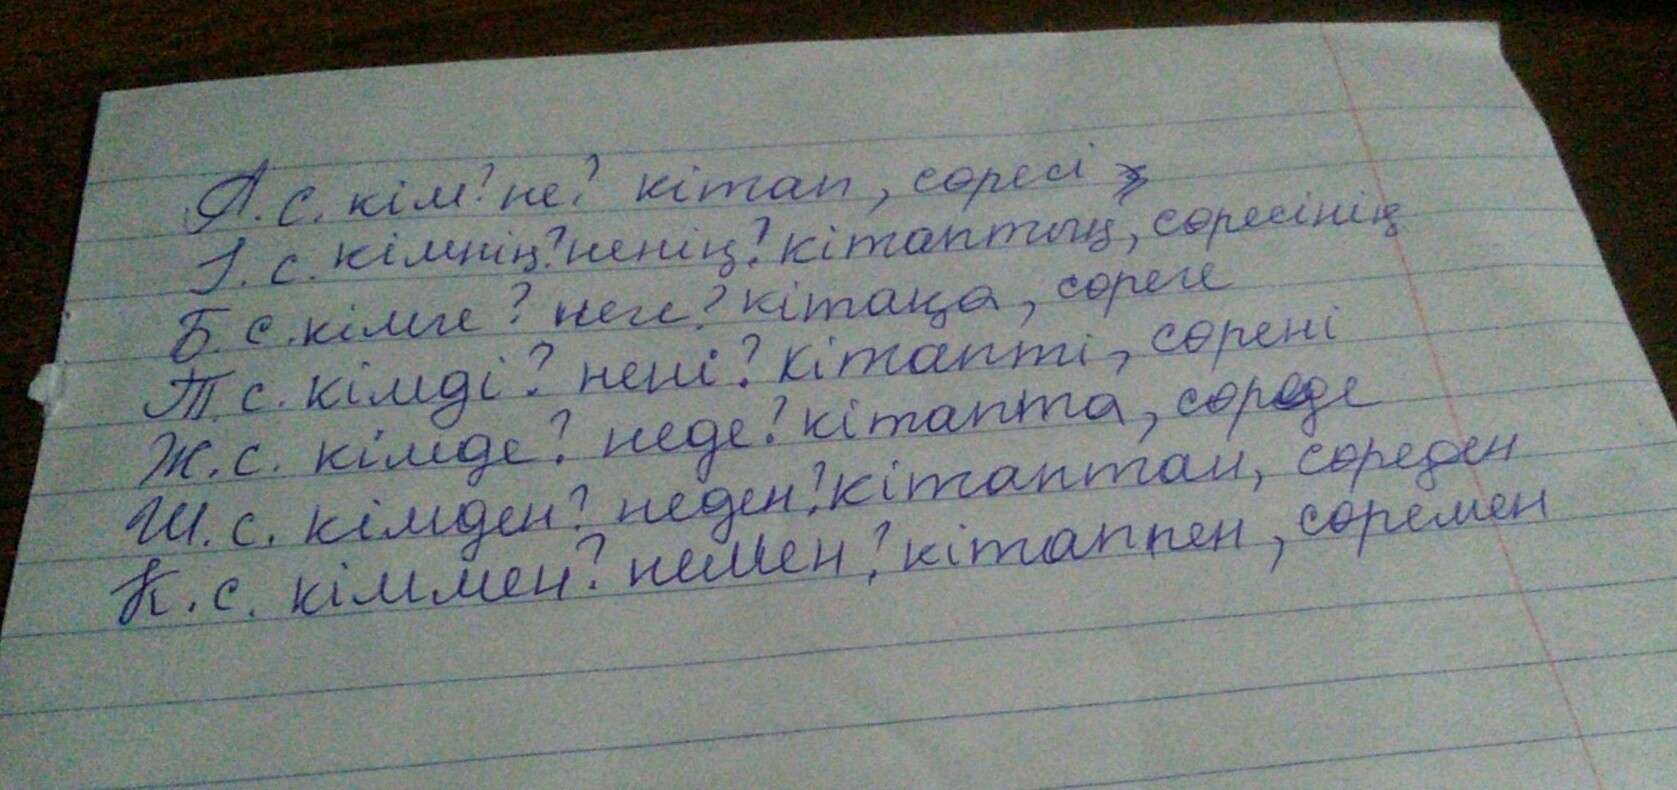 А.с. кім? не? кітап, сөресі
І.с. кімнің? ненің? кітаптың, сөресінің
Б.с. кімге? неге? кітапқа, сөреге
Т.с. кімді? нені? кітапті, сөрені
Ж.с. кімде? неде? кітапта, сөреде
Ш.с. кімден? неден? кітаптан, сөреден
К.с. кіммен? немен? кітаппен, сөремен